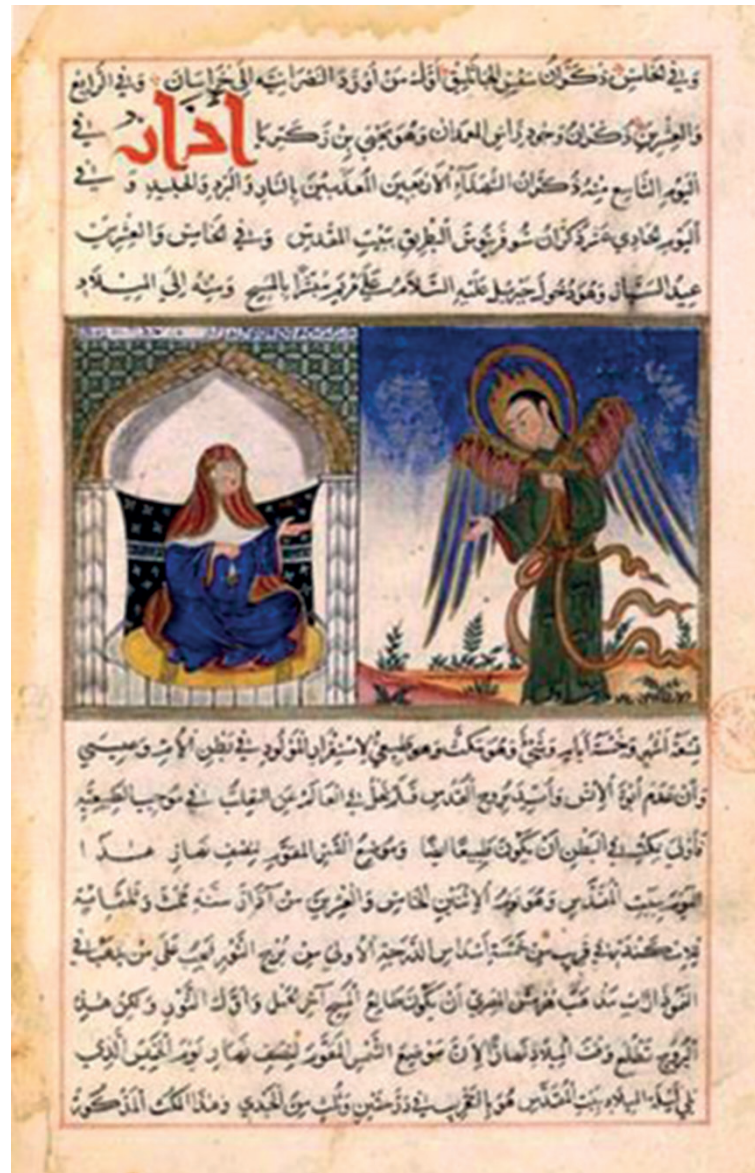 وفي الخامس ذكران الجاثليق اول من اورد النصرانية الى خراسان وفي الرابع
والعشرين ذكران وجود راس المعمدان وهو يحيى بن زكريا اذار في
اليوم التاسع منه ذكران الشهداء الاربعين المعذبين بالنار والبرد والجليد و في
اليوم الحادي عشر ذكران سوفرنيوس البطريق ببيت المقدس وفي الخامس والعشرين
عيد السبار وهو دخول جبريل عليه السلام على مريم مبشرا بالمسيح ومنه الى الميلاد
تسعة اشهر وخمسة ايام وشيء وهو مكث وهو طبيعي لاستقرار المولود في بطن الام وعيسى
وان عدم ابوة الانس وايد بروح القدس فلم يخل في العالم عن التقلب في موجب الطبيعة
فاولى بمكثه في البطن ان يكون طبيعيا ايضا وموضع القمر المقوم لنصف نهار هذا
اليوم ببيت المقدس وهو يوم الاثنين الخامس والعشرين من اذار سنة ثلث وثلثماية
للاسكندر قريب من خمسة اسداس الدرجة الاولى من برج الثور لجب على من يذهب في
مذهب هرمس المصري ان يكون طالع المسيح آخر الحمل واول الثور ولكن هذه
البروج تطلع وقت الميلاد نهارا لان موضع الشمس المقوم لنصف نهار يوم الخميس الذي
يلي ليلة الميلاد ببيت المقدس هو بالتقريب في درجتين وثلث من الجدي وهذا المكث المذكور